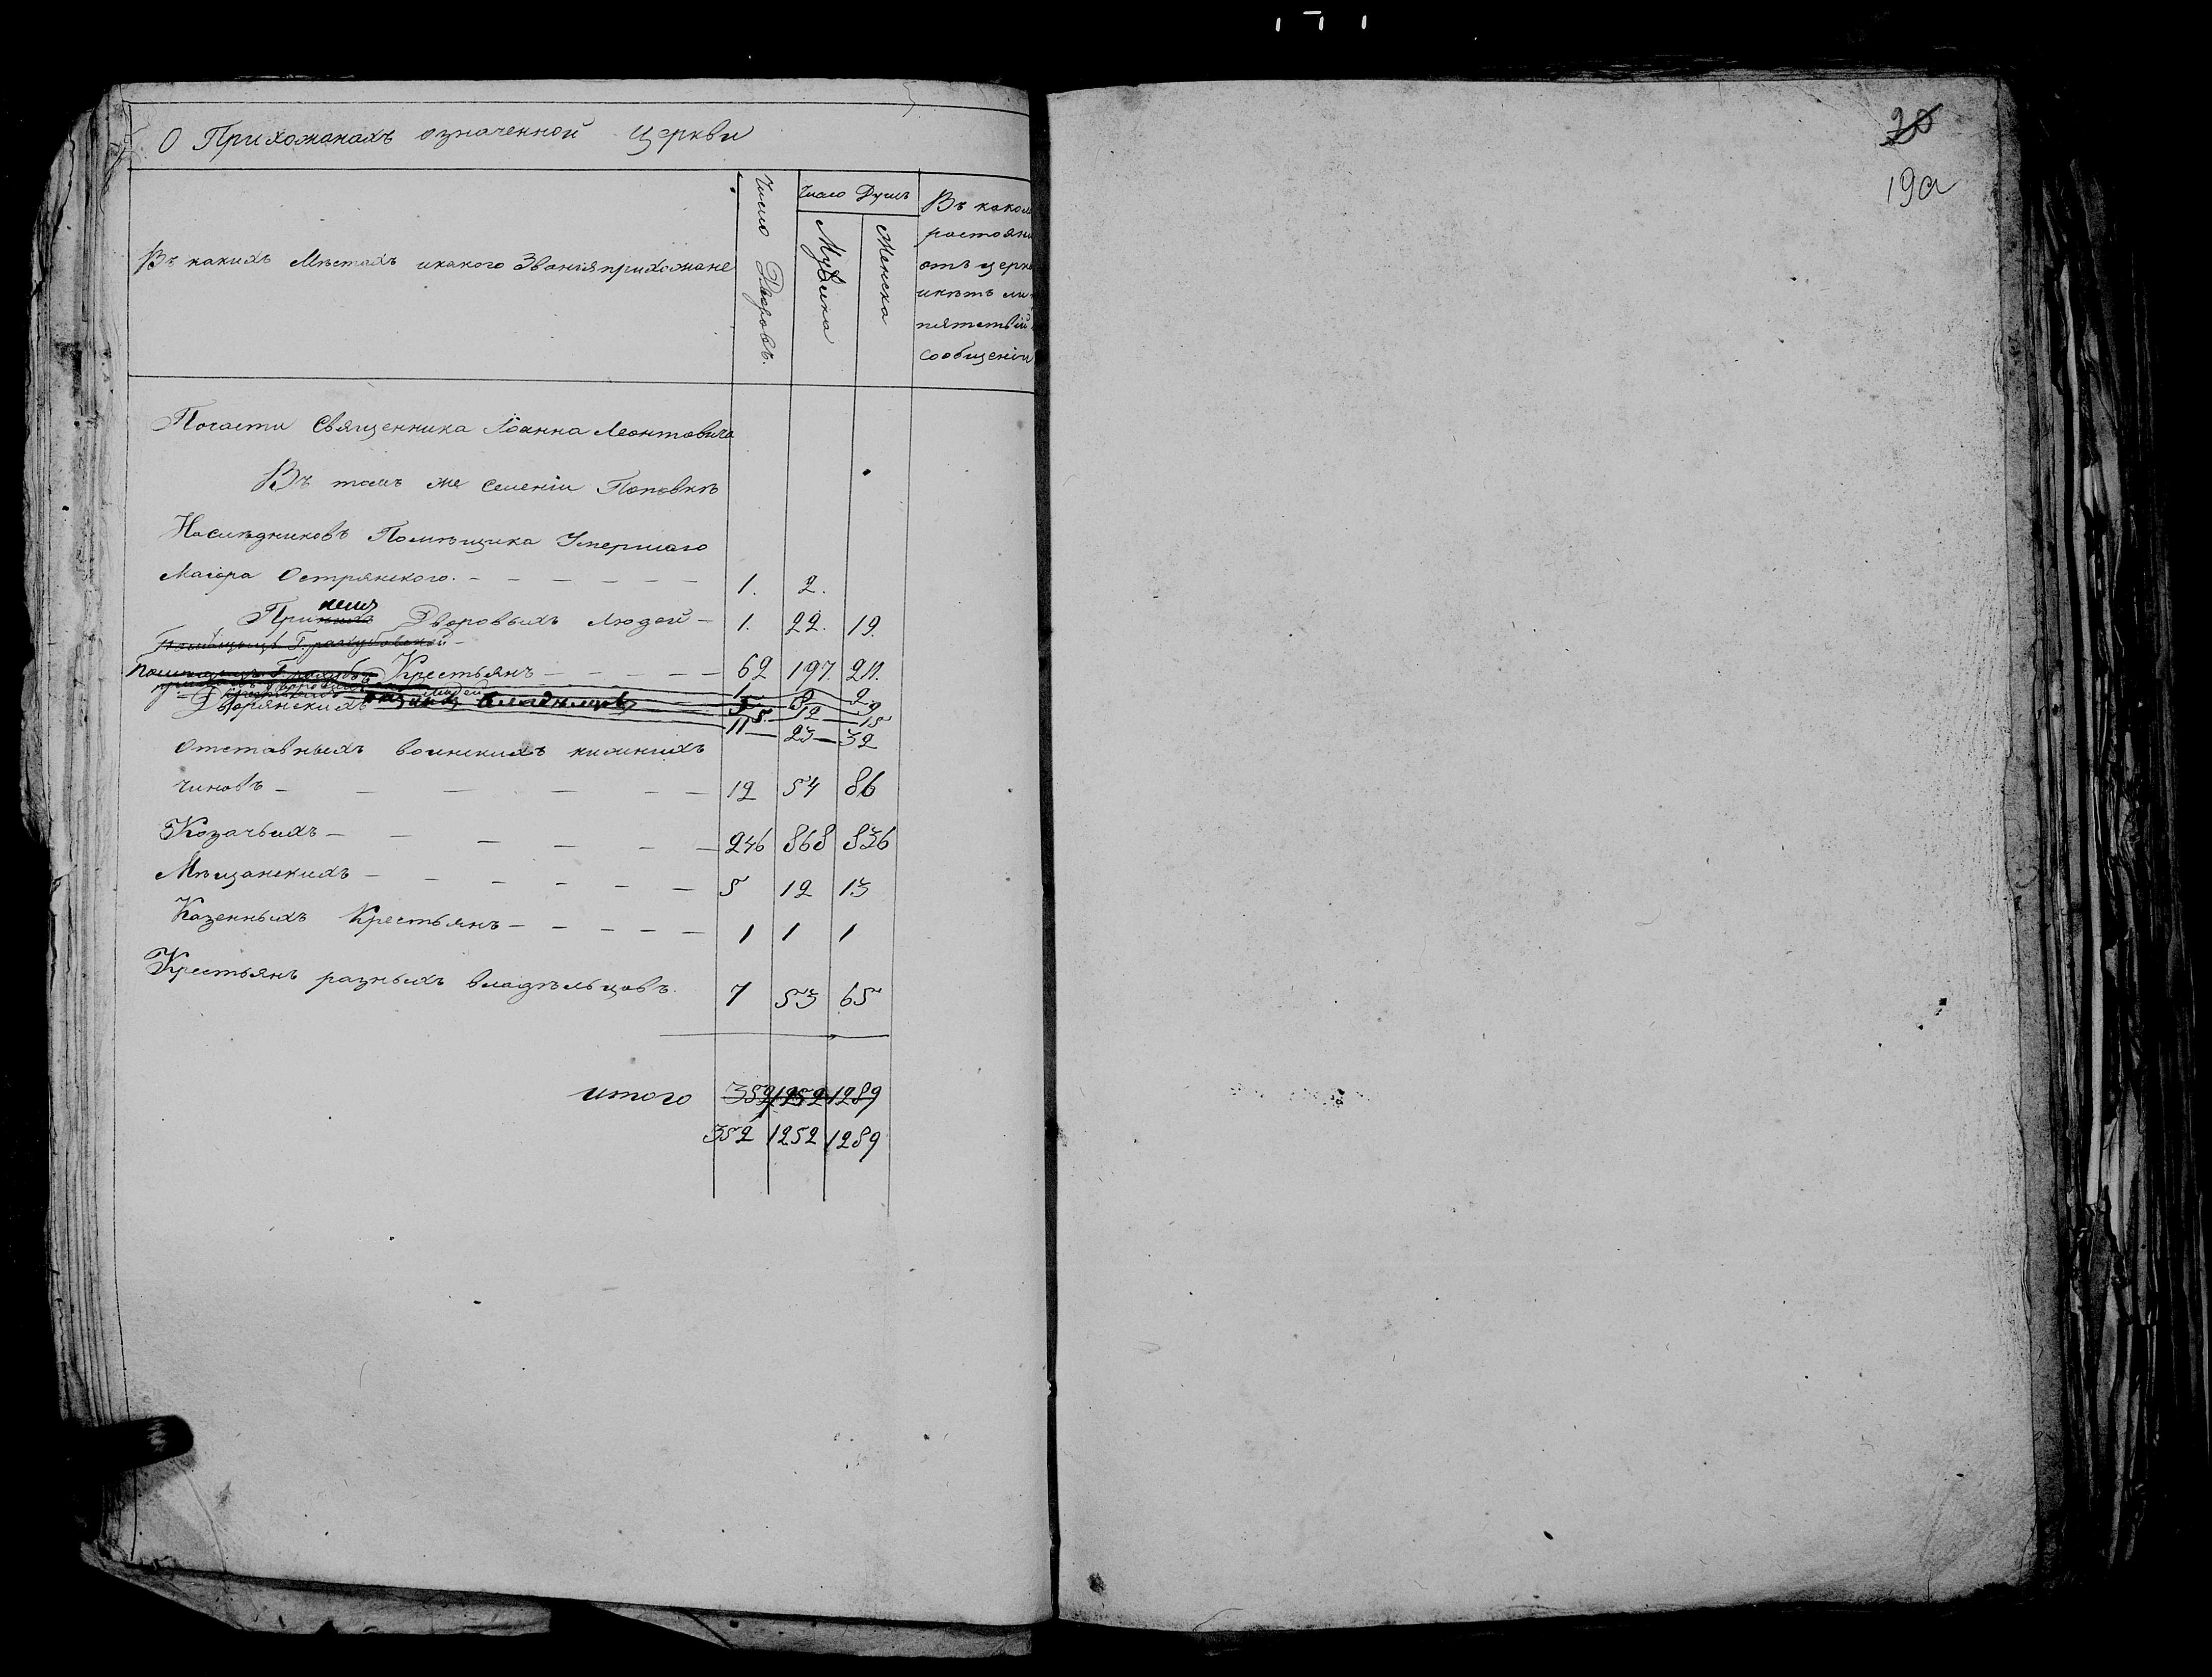 О Прихожанахъ означенной Церкви
Въ какихъ Мѣстахъ икакого Званія прихожане
Число Дворовъ.
Число Душъ
Мужеска
Женска
Въ каком
растояни
отъ церк
инѣтъ ли
пятствій
сообщеніи
Почасти Священника Іоанна Леонтовича
Въ томъ же селеніи Поповкѣ
Наслѣдниковъ Помѣщика Умершаго
Маіора Остряискаго. 1. 2.
При немъ Дворовыхъ людей 1. 22. 19.
Крестьянъ 62 197. 211.
1 8 9
Дворянскихъ 5 12 15
11 23 32
Отставныхъ воинскихъ нижнихъ
чиновъ 12 54 86
Козачьихъ 246 868 836
Мѣщанскихъ 5 12 13
Казенныхъ Крестьянъ 1 1 1
Крестьянъ разныхъ владѣльцовъ. 7 53 65
итого 352 1252 1289
352 1252 1289
20
19а